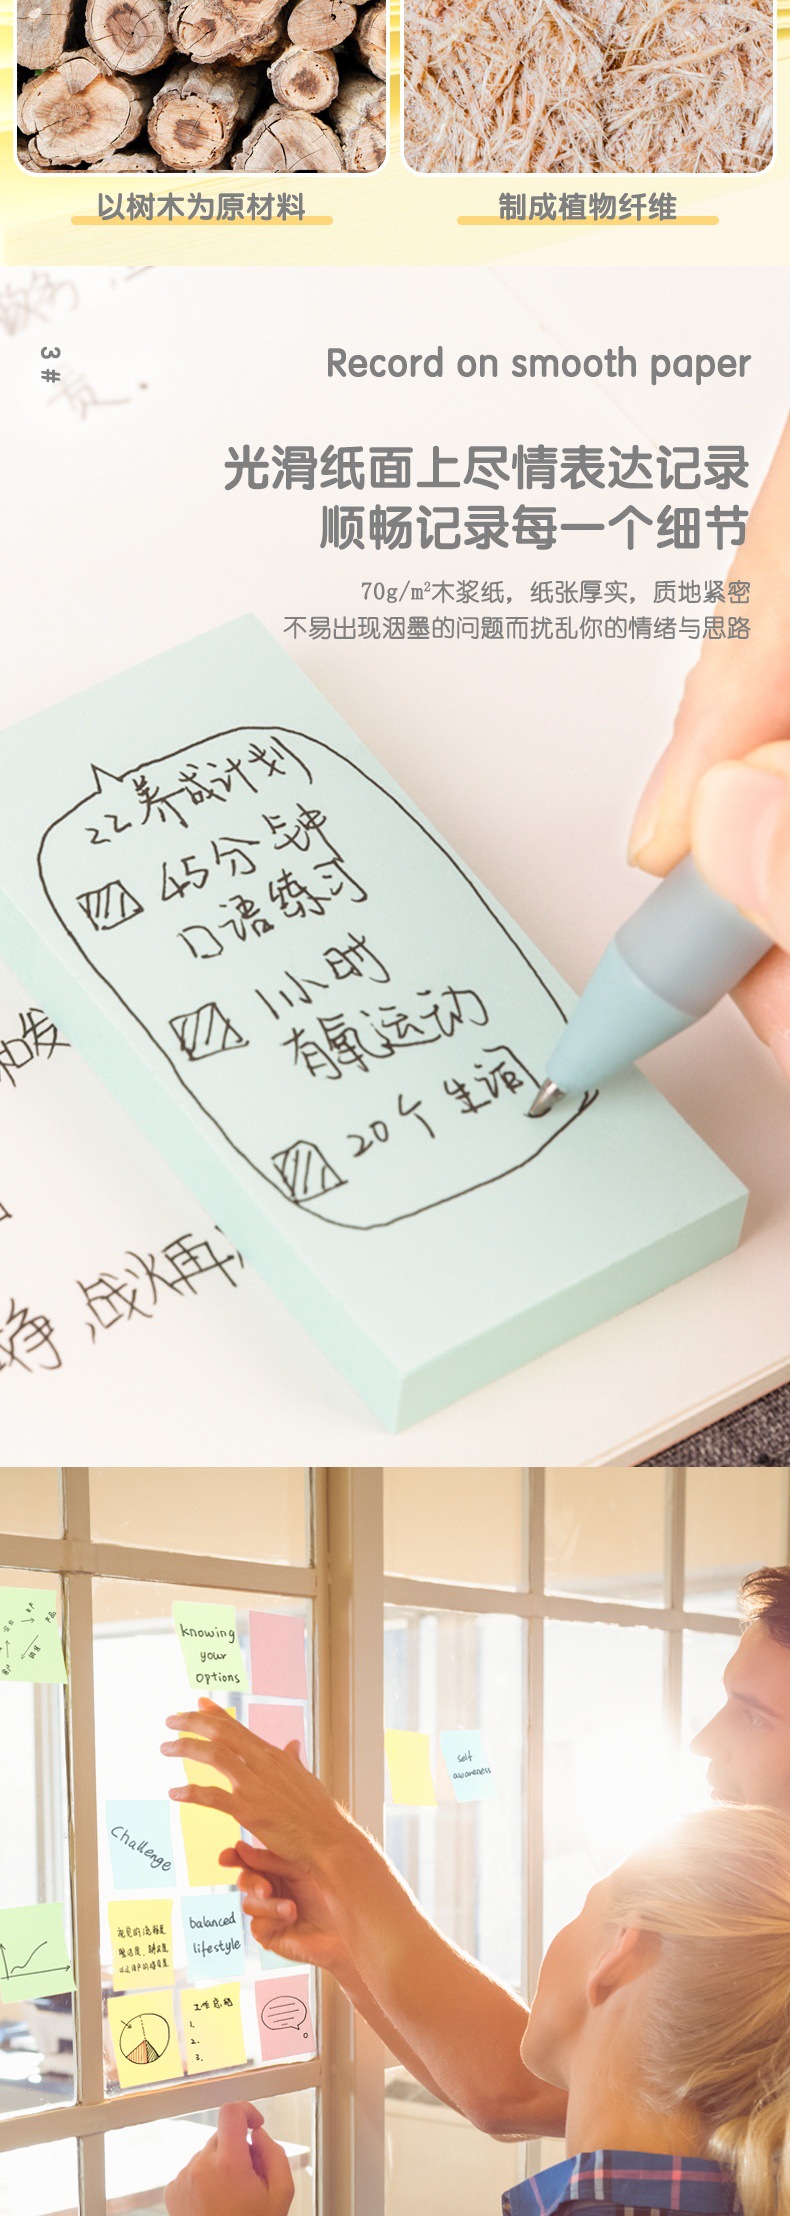 以树木为原材料
制成植物纤维
3#
Record on smooth paper
光滑纸面上尽情表达记录
顺畅记录每一个细节
70g/m²木浆纸，纸张厚实，质地紧密
不易出现洇墨的问题而扰乱你的情绪与思路
22养成计划
45分钟
口语练习
1小时
有氧运动
20个生词
和发
战火再
knowing
your
options
self
awareness
Challenge
balanced
lifestyle
工作总结
1.
2.
3.